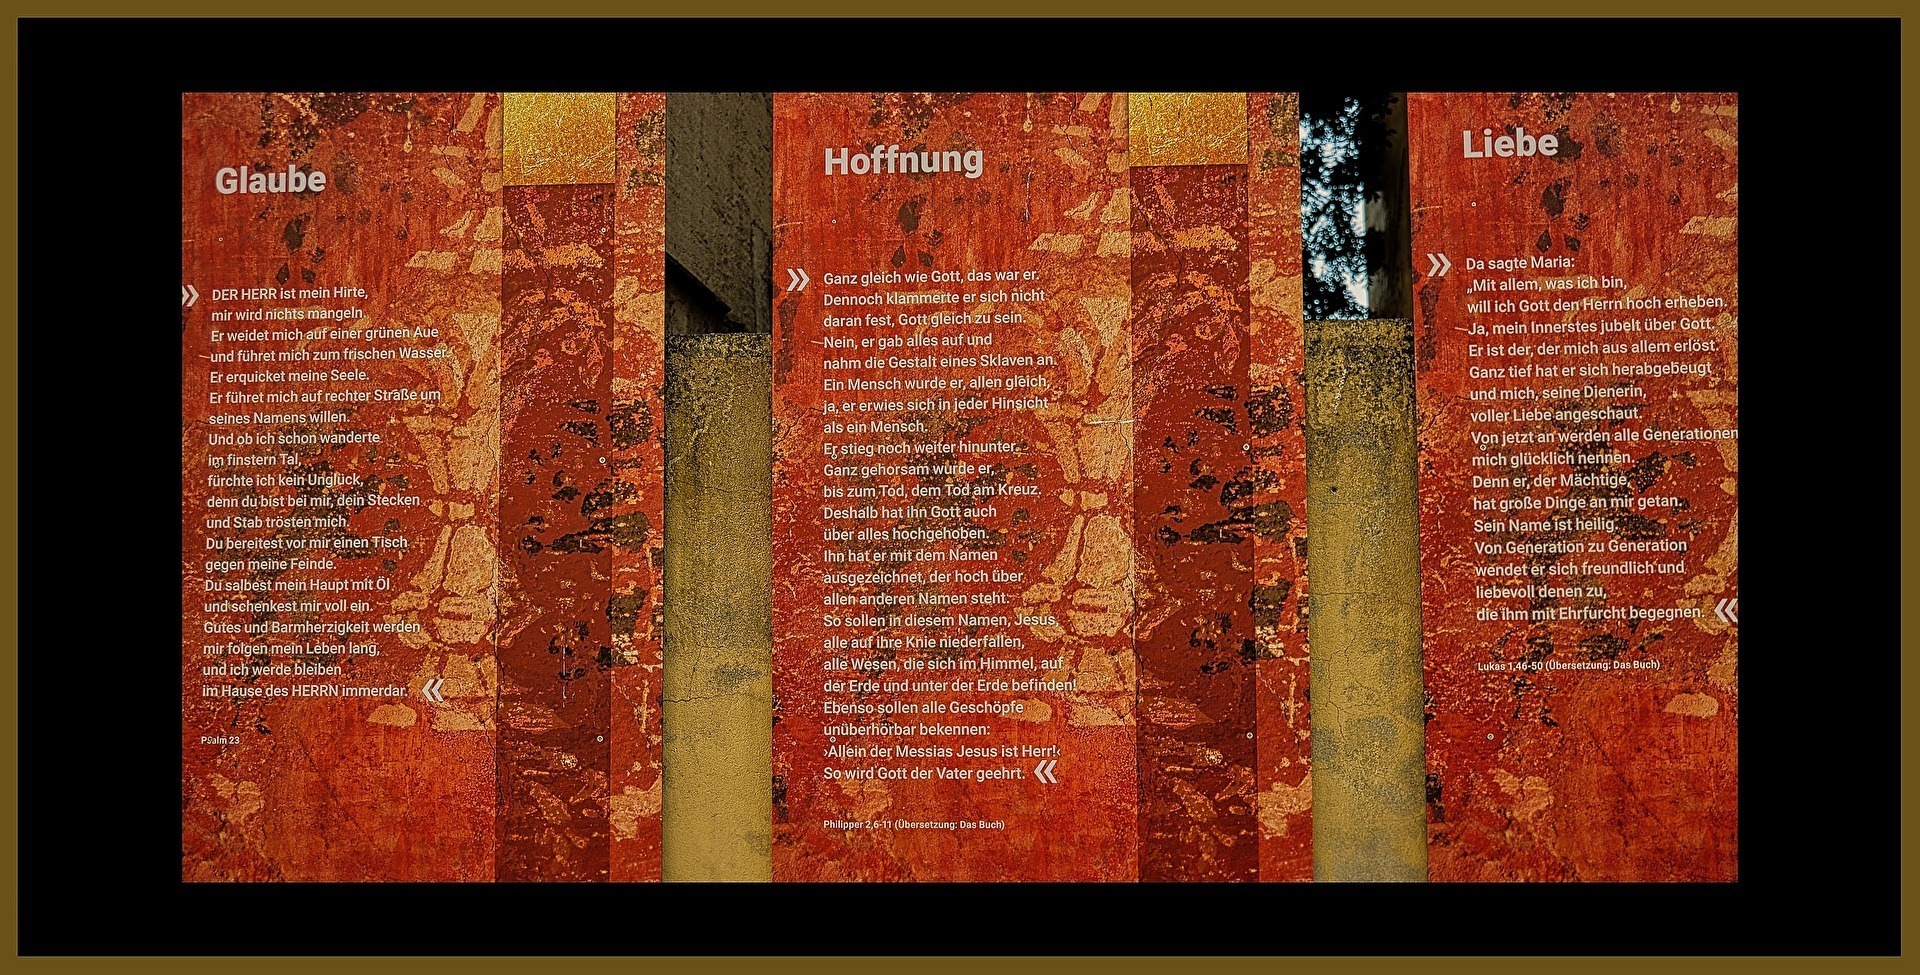 Glaube
» DER HERR ist mein Hirte,
mir wird nichts mangeln.
Er weidet mich auf einer grünen Aue
und führet mich zum frischen Wasser.
Er erquicket meine Seele.
Er führet mich auf rechter Straße um
seines Namens willen.
Und ob ich schon wanderte
im finstern Tal,
fürchte ich kein Unglück,
denn du bist bei mir, dein Stecken
und Stab trösten mich.
Du bereitest vor mir einen Tisch
gegen meine Feinde.
Du salbest mein Haupt mit Öl
und schenkest mir voll ein.
Gutes und Barmherzigkeit werden
mir folgen mein Leben lang,
und ich werde bleiben
im Hause des HERRN immerdar. «
Psalm 23
Hoffnung
» Ganz gleich wie Gott, das war er.
Dennoch klammerte er sich nicht
daran fest, Gott gleich zu sein.
Nein, er gab alles auf und
nahm die Gestalt eines Sklaven an.
Ein Mensch wurde er, allen gleich,
ja, er erwies sich in jeder Hinsicht
als ein Mensch.
Er stieg noch weiter hinunter.
Ganz gehorsam wurde er,
bis zum Tod, dem Tod am Kreuz.
Deshalb hat ihn Gott auch
über alles hochgehoben.
Ihn hat er mit dem Namen
ausgezeichnet, der hoch über
allen anderen Namen steht.
So sollen in diesem Namen, Jesus,
alle auf ihre Knie niederfallen,
alle Wesen, die sich im Himmel, auf
der Erde und unter der Erde befinden!
Ebenso sollen alle Geschöpfe
unüberhörbar bekennen:
›Allein der Messias Jesus ist Herr!‹
So wird Gott der Vater geehrt. «
Philipper 2,6-11 (Übersetzung: Das Buch)
Liebe
» Da sagte Maria:
„Mit allem, was ich bin,
will ich Gott den Herrn hoch erheben.
Ja, mein Innerstes jubelt über Gott.
Er ist der, der mich aus allem erlöst.
Ganz tief hat er sich herabgebeugt
und mich, seine Dienerin,
voller Liebe angeschaut.
Von jetzt an werden alle Generationen
mich glücklich nennen.
Denn er, der Mächtige,
hat große Dinge an mir getan.
Sein Name ist heilig.
Von Generation zu Generation
wendet er sich freundlich und
liebevoll denen zu,
die ihm mit Ehrfurcht begegnen. «
Lukas 1,46-50 (Übersetzung: Das Buch)